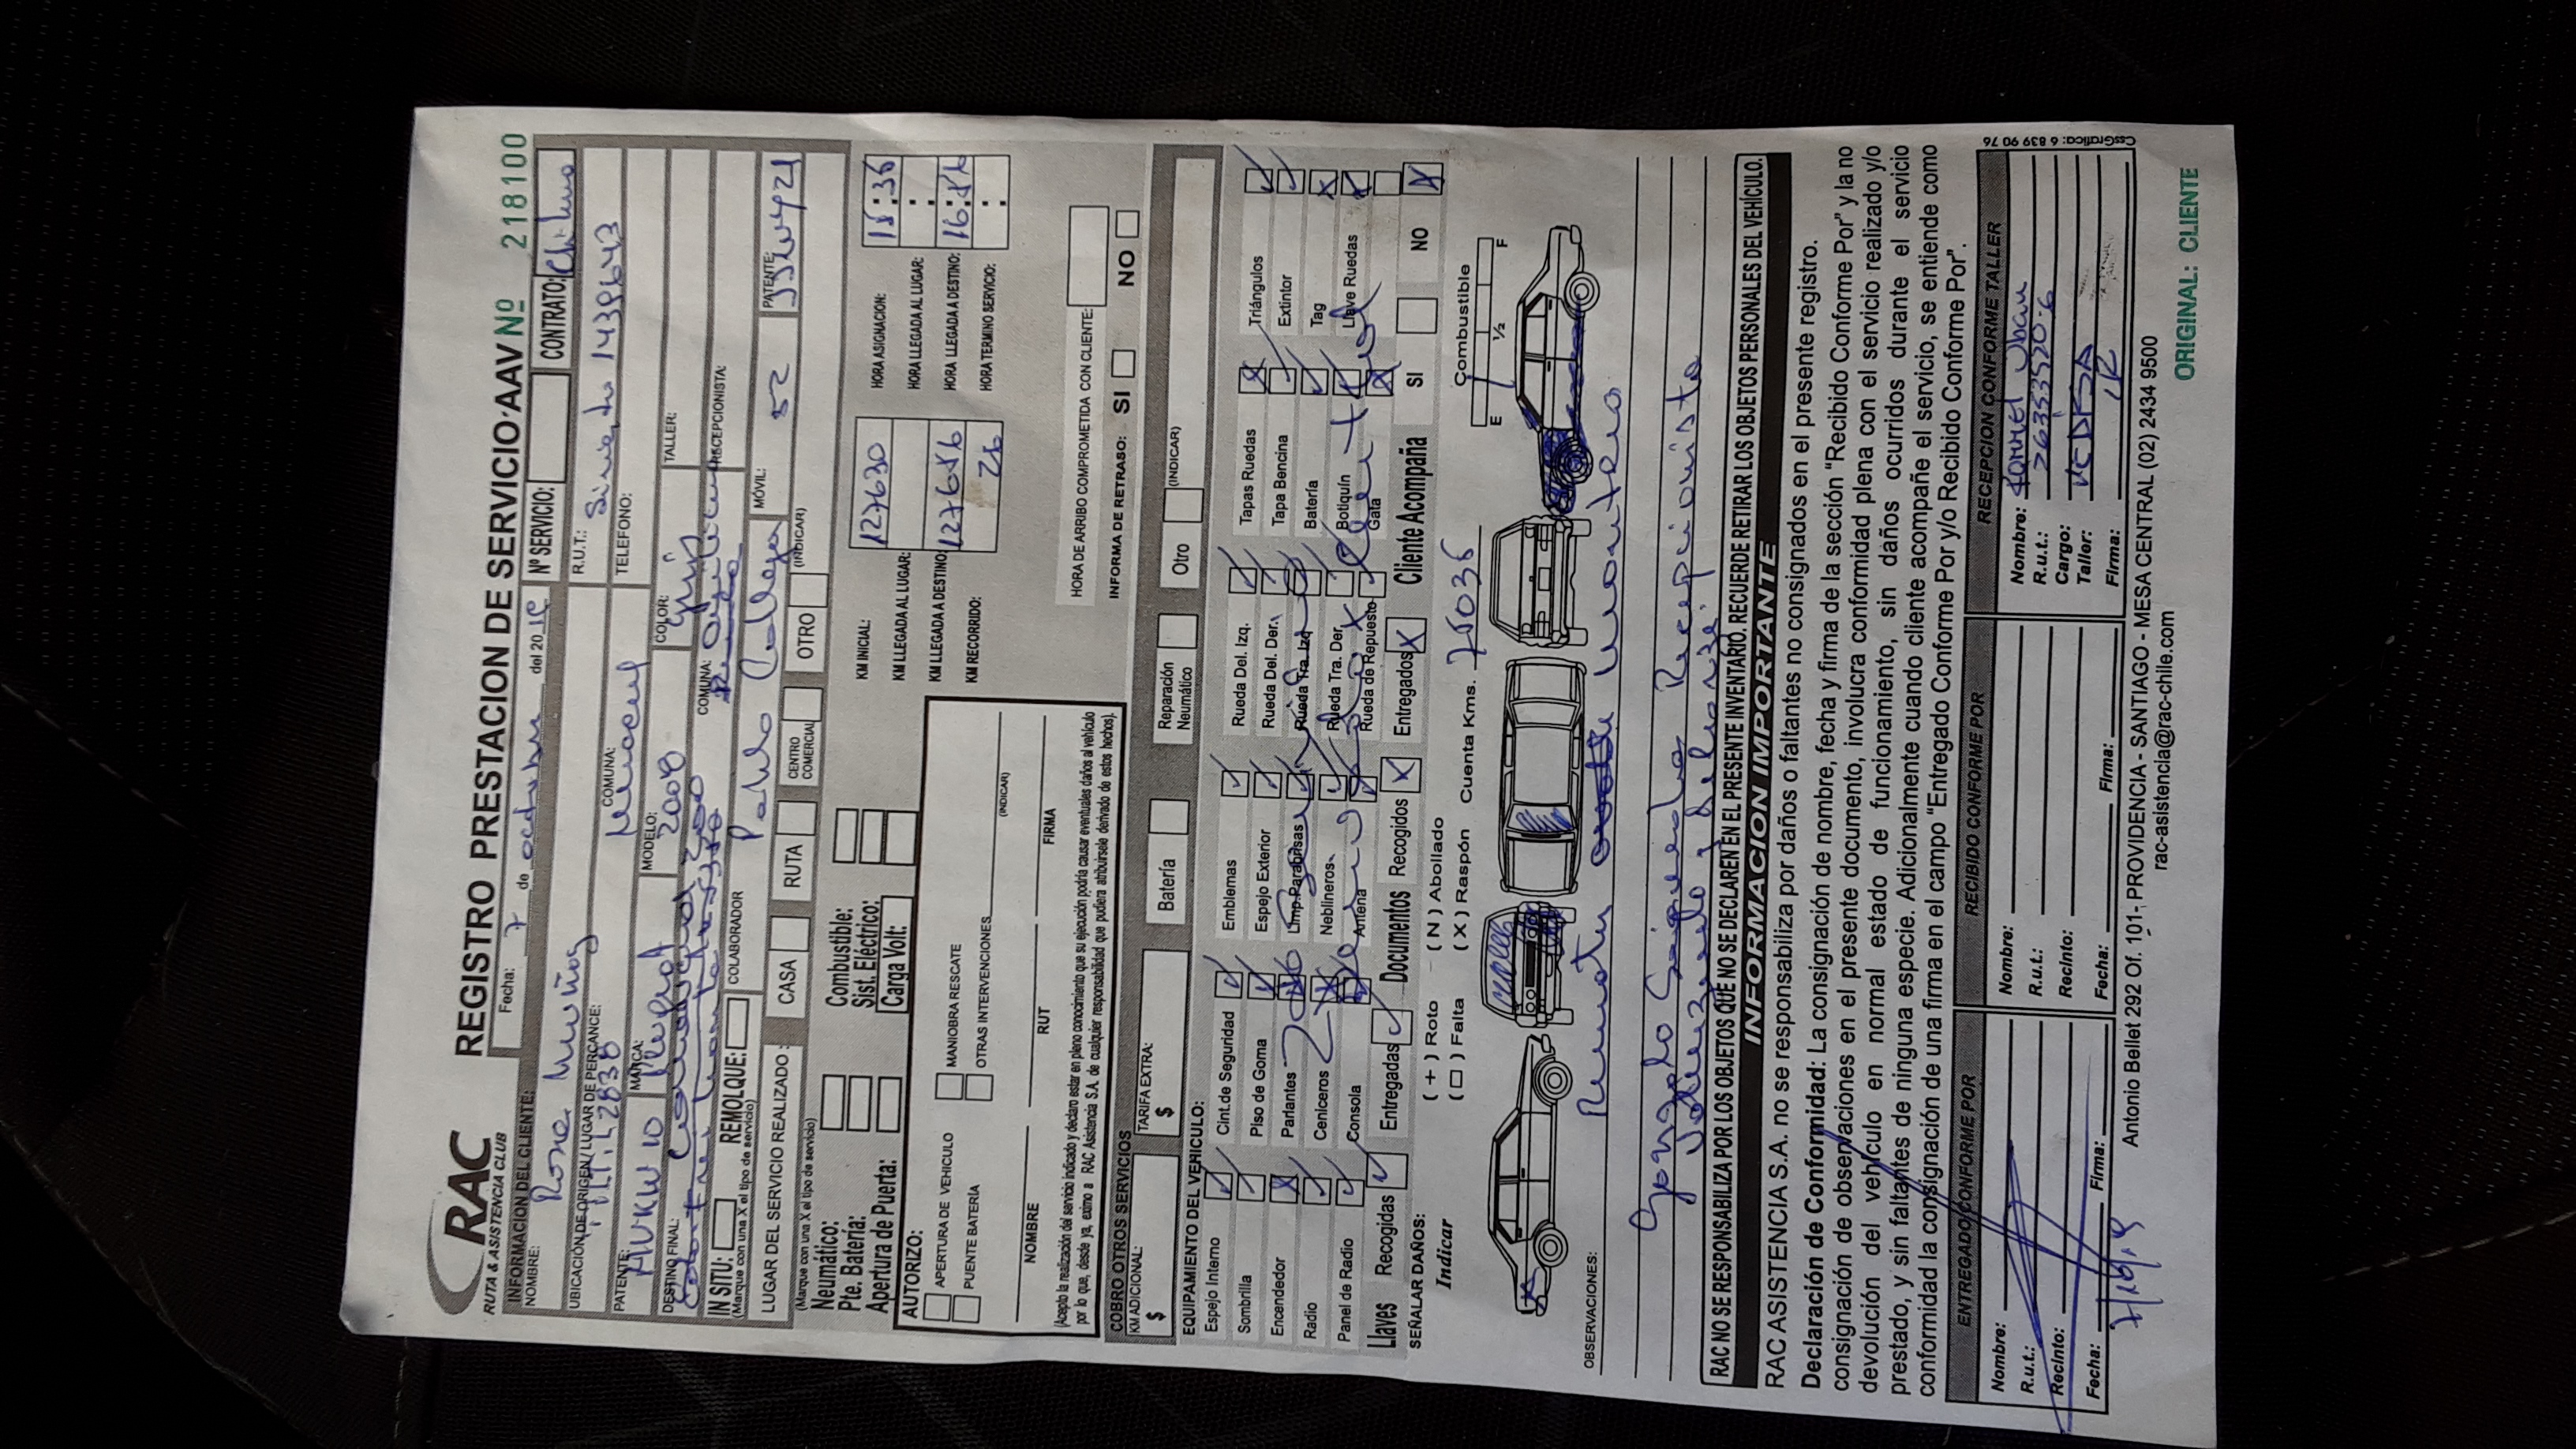 RAC
RUTA & ASISTENCIA CLUB
REGISTRO PRESTACION DE SERVICIO·AAV Nº 218100
Fecha: 7 de octubre del 20
Nº SERVICIO:
CONTRATO:
INFORMACION DEL CLIENTE:
NOMBRE: Rosa Muñoz
R.U.T.: Siniestro 14396643
UBICACIÓN DE ORIGEN/ LUGAR DE PERCANCE:
COMUNA:
TELEFONO:
PATENTE:
MARCA: Peugeot
MODELO: 2008
COLOR: gris
TALLER:
DESTINO FINAL:
COMUNA:
RECEPCIONISTA:
IN SITU:
REMOLQUE:
(Marque con una X el tipo de servicio)
COLABORADOR Pablo
MÓVIL: 52
PATENTE:
LUGAR DEL SERVICIO REALIZADO :
(Marque con una X el tipo de servicio)
CASA
RUTA
CENTRO COMERCIAL
OTRO
(INDICAR)
Neumático:
Combustible:
Pte. Batería:
Sist. Eléctrico:
Apertura de Puerta:
Carga Volt:
KM INICIAL: 127630
HORA ASIGNACION: 15:36
KM LLEGADA AL LUGAR:
HORA LLEGADA AL LUGAR:
KM LLEGADA A DESTINO: 127656
HORA LLEGADA A DESTINO:
KM RECORRIDO: 26
HORA TERMINO SERVICIO:
AUTORIZO:
APERTURA DE VEHICULO
MANIOBRA RESCATE
PUENTE BATERÍA
OTRAS INTERVENCIONES
(INDICAR)
NOMBRE
RUT
FIRMA
(Acepto la realización del servicio indicado y declaro estar en pleno conocimiento que su ejecución podría causar eventuales daños al vehículo
por lo que, desde ya, eximo a RAC Asistencia S.A. de cualquier responsabilidad que pudiera atribuírsele derivado de estos hechos).
HORA DE ARRIBO COMPROMETIDA CON CLIENTE:
INFORMA DE RETRASO: SI NO
COBRO OTROS SERVICIOS
KM ADICIONAL:
$
TARIFA EXTRA:
$
Batería
Reparación Neumático
Otro
(INDICAR)
EQUIPAMIENTO DEL VEHICULO:
Espejo Interno
Cint.de Seguridad
Emblemas
Rueda Del. Izq.
Tapas Ruedas
Triángulos
Sombrilla
Piso de Goma
Espejo Exterior
Rueda Del. Der.
Tapa Bencina
Extintor
Encendedor
Parlantes
Limp.Parabrisas
Rueda Tra. Izq
Batería
Tag
Radio
Ceniceros
Neblineros
Rueda Tra. Der
Botiquín
Llave Ruedas
Panel de Radio
Consola
Antena
Rueda de Repuesto
Gata
Llaves Recogidas Entregadas
Documentos Recogidos Entregados
Cliente Acompaña SI NO
SEÑALAR DAÑOS:
Indicar
( + ) Roto
( N ) Abollado
( □ ) Falta
( X ) Raspón
Cuenta Kms. 75036
Combustible
E ½ F
OBSERVACIONES:
Gonzalo Recepcionista
RAC NO SE RESPONSABILIZA POR LOS OBJETOS QUE NO SE DECLAREN EN EL PRESENTE INVENTARIO. RECUERDE RETIRAR LOS OBJETOS PERSONALES DEL VEHÍCULO.
INFORMACION IMPORTANTE
RAC ASISTENCIA S.A. no se responsabiliza por daños o faltantes no consignados en el presente registro.
Declaración de Conformidad: La consignación de nombre, fecha y firma de la sección “Recibido Conforme Por” y la no
consignación de observaciones en el presente documento, involucra conformidad plena con el servicio realizado y/o
devolución del vehículo en normal estado de funcionamiento, sin daños ocurridos durante el servicio
prestado, y sin faltantes de ninguna especie. Adicionalmente cuando cliente acompañe el servicio, se entiende como
conformidad la consignación de una firma en el campo “Entregado Conforme Por y/o Recibido Conforme Por”.
ENTREGADO CONFORME POR
Nombre:
R.u.t.:
Recinto:
Fecha: Firma:
RECIBIDO CONFORME POR
Nombre:
R.u.t.:
Recinto:
Fecha: Firma:
RECEPCION CONFORME TALLER
Nombre:
R.u.t.: 26353520-6
Cargo:
Taller:
Firma:
CssGrafica: 6 839 90 76
Antonio Bellet 292 Of. 101- PROVIDENCIA - SANTIAGO - MESA CENTRAL (02) 2434 9500
rac-asistencia@rac-chile.com
ORIGINAL: CLIENTE